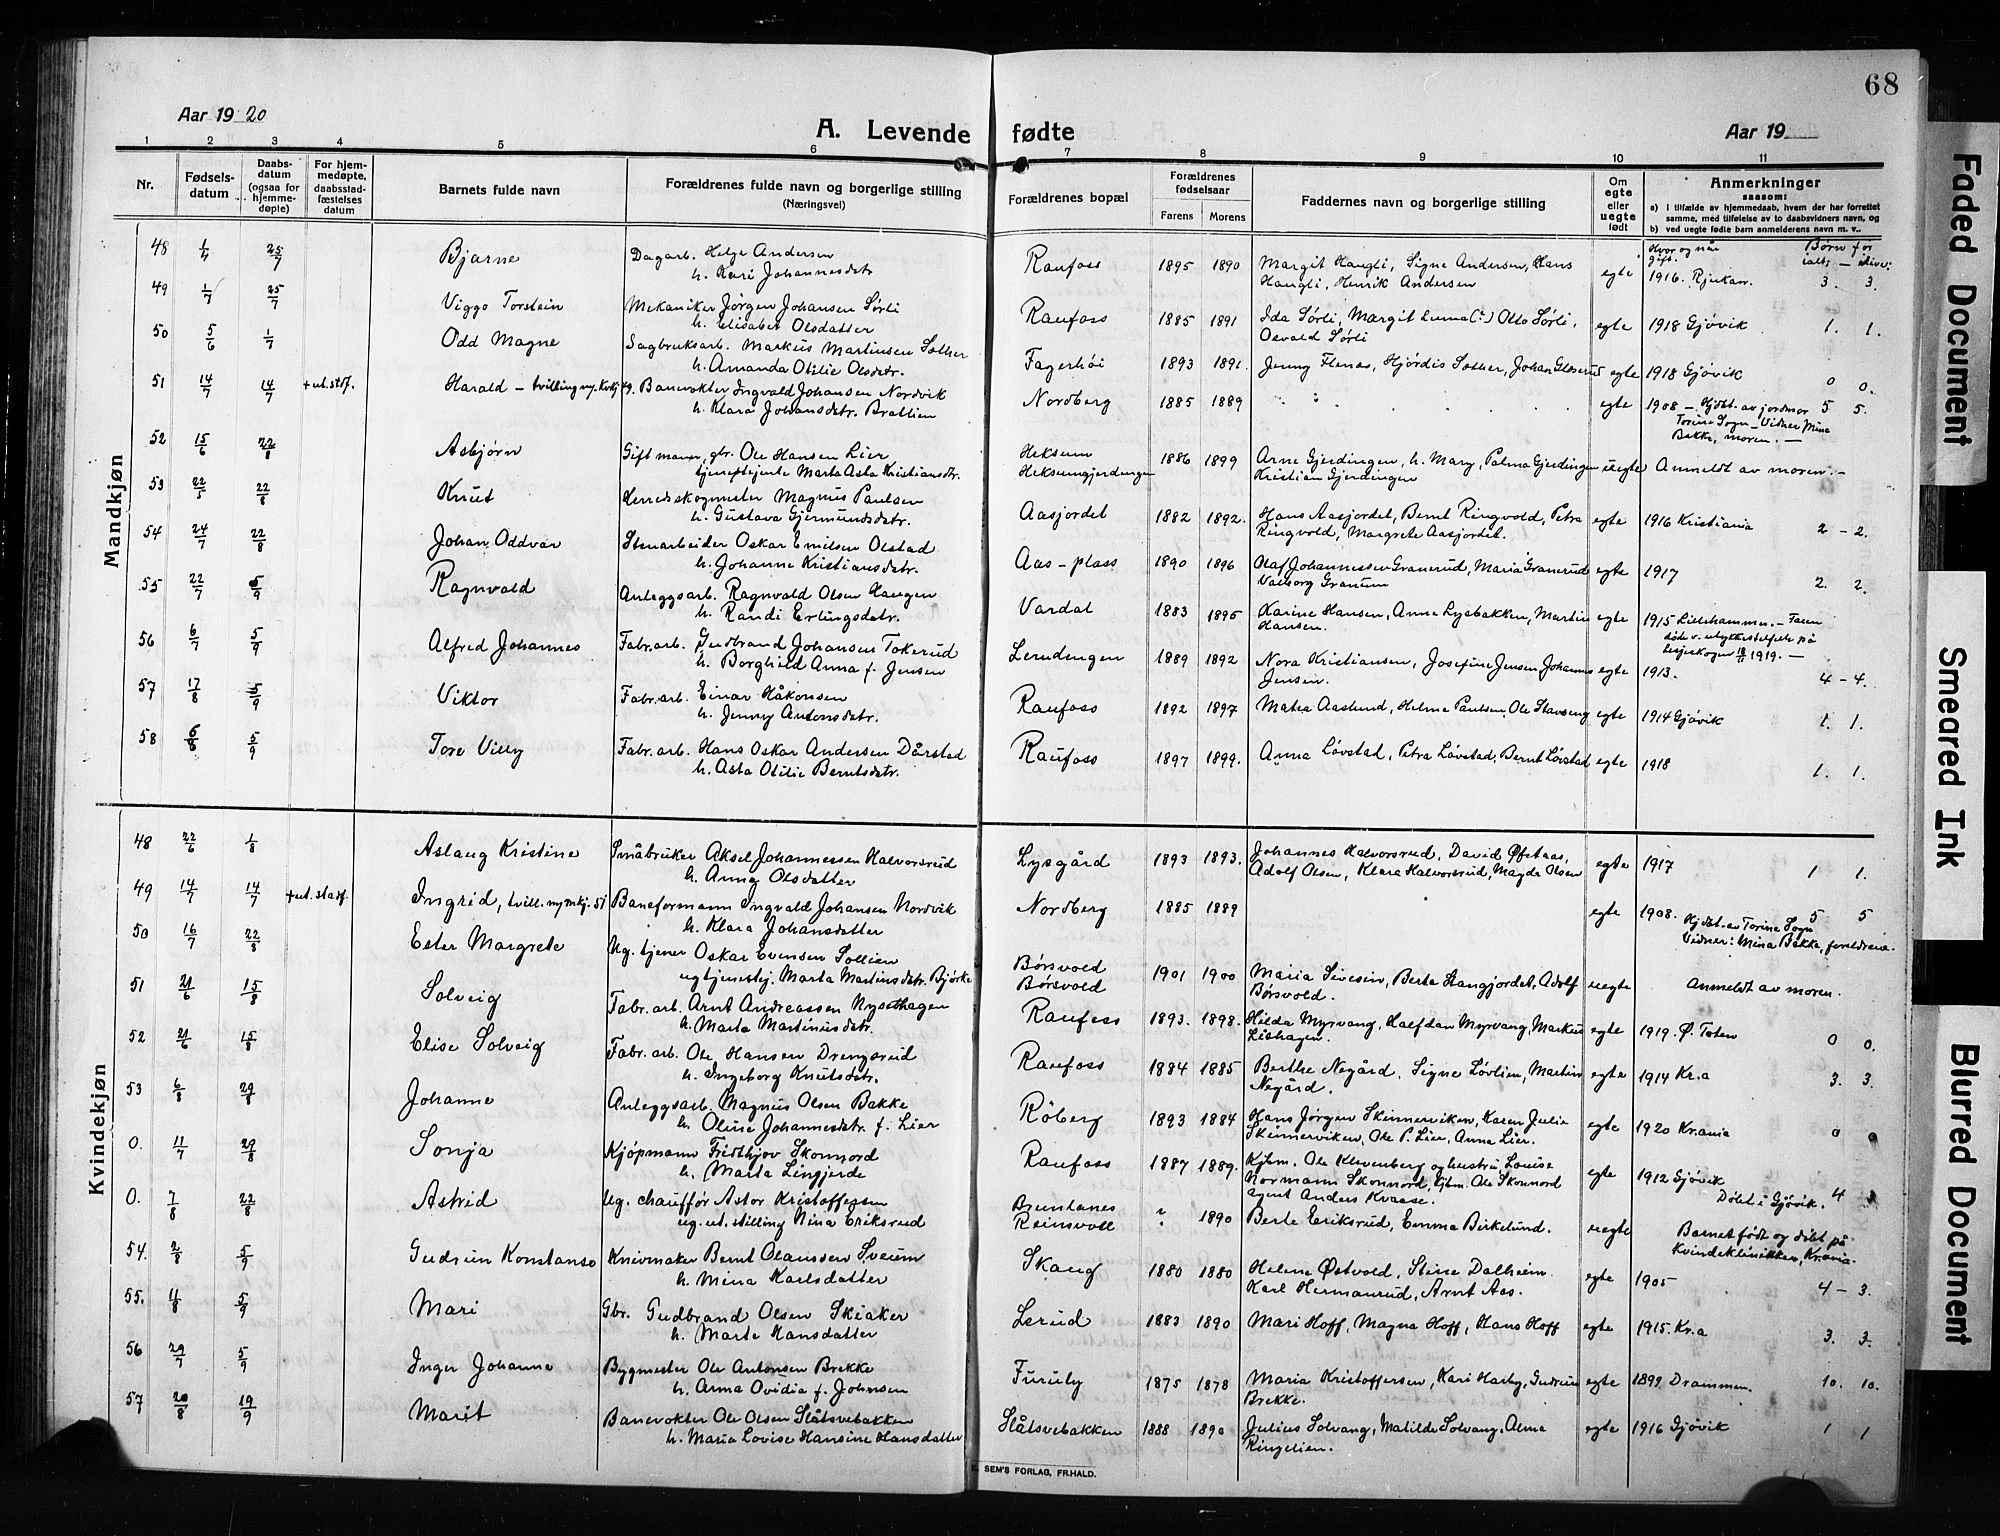 68
Aar 1920
A. Levende fødte
Aar 19
1 2 3 4 5 6 7 8 9 10 11
Nr.
Fødselsdatum
Daabsdatum (ogsaa for hjemmedøpte)
For hjemmedøpte, daabsstadfæstelses datum
Barnets fulde navn
Forældrenes fulde navn og borgerlige stilling
(Næringsvei)
Forældrenes bopæl
Forældrenes fødselsaar
Farens Morens
Faddernes navn og borgerlige stilling
Om egte eller uegte født
Anmerkninger
saasom:
a) i tilfælde av hjemmedaab, hvem der har forrettet
samme, med tilføielse av to daabsvidners navn, og
b) ved uegte fødte barn anmelderens navn m. v..
Hvor og når gift. Børn før ialt – ilive:
Mandkjøn
48 1/7 25/7 Bjarne Dagarb. Helge Andersen Raufoss 1895 1890 Margit Haugli, Signe Andersen, Hans egte 1916. Rjukan. 3. 3.
h. Kari Johannesdtr. Haugli, Henrik Andersen
49 1/7 25/7 Viggo Torstein Mekaniker Jørgen Johansen Sørli Raufoss 1885 1891 Ida Sørli, Margit (?) Otto Sørli, egte 1918 Gjøvik 1. 1.
h. Elisabet Olsdatter Osvald Sørli
50 5/6 1/7 Odd Magne Sagbruksarb. Markus Martinsen Sæther Fagerhøi 1893 1891. Jenny Flenas, Hjørdis Sæther, Johan egte 1918 Gjøvik 0 0.
h. Amanda Otilie Olsdtr.
51 14/7 14/7 + ut. stf. Harald – tvilling m. kvkj. 49. Banevokter Ingvald Johansen Nordvik Nordberg 1885 1889 egte 1908 – Hjdbt. av jordmor 5 5.
h. Klara Johansdtr. Brattlien Torine Sogn – Vidner Mina
Bakke, moren. —
52 15/6 22/8 Asbjørn Gift mann, gbr. Ole Hansen Lier Heksum 1886 1899 Arne Gjerdingen, h. Mary, Palma Gjerdingen uegte Anmeldt av moren. –
tjenestejente Marta Asta Kristiansdtr. Heksumgjerdingen Kristian Gjerdingen
53 22/5 22/8 Knut Herredskogmester Magnus Paulsen Aasjordet 1882 1892. Hans Aasjordet, Bernt Ringvold, Petra egte 1916 Kristiania 2 – 2.
h. Gustava Gjermundsdtr. Ringvold, Margrete Aasjordet.
54 24/7 22/8 Johan Oddvar Stenarbeider Oskar Emilsen Olstad Aas – plass 1890 1896 Olaf Johannessen Granerud, Maria Granerud egte 1917 2. 2.
h. Johanne Kristiansdtr. Valborg Granum
55 22/7 5/9 Ragnvald Anleggsarb. Ragnvald Olsen Haugen Vardal 1883 1895 Karine Hansen, Anne Lysbakken, Martin egte 1915 Lillehammer. – Faren
h. Randi Erlingsdtr. Hansen. døde v. ulykkestilfelle på
Lesjeskogen 1919. —
56 6/7 5/9 Alfred Johannes Fabr. arb. Gudbrand Johansen Tokerud Lerudengen 1889 1892 Nora Kristiansen, Josefine Jensen, Johannes egte 1913. 4 – 4.
h. Borghild Anna f. Jensen Jensen.
57 17/8 5/9 Viktor Fabr. arb. Einar Håkonsen Raufoss 1892 1897 Matea Aaslund, Helma Paulsen, Ole Stavseng egte 1914 Gjøvik 1. 1.
h. Jenny Antonsdtr.
58 6/8 5/9 Tore Villy Fabr. arb. Hans Oskar Andersen Dårstad Raufoss 1897 1899. Anna Løvstad, Petra Løvstad, Bernt Løvstad egte 1918 1. 1.
h. Asta Otilie Berntsdtr.
Kvindekjøn
48 22/6 1/8 Aslaug Kristine Småbruker Aksel Johannessen Halvorsrud Lysgård 1893 1893. Johannes Halvorsrud, David Øfstaas, egte 1917 1 1.
h. Anna Olsdatter Adolf Olsen, Klara Halvorsrud, Magda Olsen
49 14/7 14/7 + ut. stadf. Ingrid, tvill. m. mkj. 51 Baneformann Ingvald Johansen Nordvik Nordberg 1885 1889 egte 1908. Hjdbt. av Torine Sogn 5 5
h. Klara Johansdatter Vidner: Mina Bakke, foreldrene.
50 16/7 22/8 Ester Margrete Ug. tjener Oskar Evensen Sollien Børsvold 1901 1900 Maria Sivesin, Berte Hangjordet, Adolf uegte Anmeldt av moren.
ug tjenestej. Marta Martinsdtr. Bjørke Børsvold Børsvold.
51 21/6 15/8 Solveig Fabr. arb. Arnt Andreassen Nysethagen Raufoss 1893. 1898. Hilda Myrvang, Halfdan Myrvang, Markus egte 1919. Ø. Toten 0 0.
h. Marta Martinusdtr. Lishagen.
52 21/6 15/8 Elise Solveig Fabr. arb. Ole Hansen Drengsrud Raufoss 1884 1885 Berthe Negård, Signe Løvlien, Martin egte 1914 Kr.a 3. 3.
h. Ingeborg Knutsdtr. Negård.
53 6/8 29/8 Johanne Anleggsarb. Magnus Olsen Bakke Røberg 1893 1884 Hans Jørgen Skinnerviken, Karen Julie egte 1920 Kr.ania 0 0
h. Oline Johannesdtr. f. Lier Skinnerviken, Ole P. Lier, Anna Lier.
0. 11/7 29/8 Sonja Kjøpmann Fridthjov Skonnord Raufoss 1887 1889. Kjbm. Ole Klevenberg og hustru, Louise egte 1912 Gjøvik 4 3
h. Marta Lingjerde Normann Skonnord, kjbm. Ole Skonnord Døbt i Gjøvik.
agent Anders Kvaase.
0. 7/8 22/8 Astrid Ug. chauffør Astor Kristoffersen Bruntanes ? 1890 Berte Eriksrud, Emma Birkelund. uegte Barnet født og døbt på
ug. ut. stilling Nina Eriksrud Reinsvoll Kvindeklinikken, Kr.ania.
54. 2/8 5/9 Gudrun Konstanse Knivmaker Bernt Olaussen Sveum Skaug 1880 1880 Helene Østvold, Stine Dalheim egte 1905 4 – 3.
h. Mina Karlsdatter Karl Hermanrud, Arnt Aas.
55. 11/8 5/9 Mari Gbr. Gudbrand Olsen Skiaker Lerud 1883 1890 Mari Hoff, Magna Hoff, Hans Hoff egte 1915. Kr.a 3. 3.
h. Marte Hansdatter
56 29/7 5/9 Inger Johanne Bygmester Ole Antonsen Brekke Furuly 1875 1878 Maria Kristoffersen, Kari Harby, Gudrun egte 1899 Drammen. 10. 10.
h. Anna Ovidia f. Johnsen Brekke.
57 20/8 19/9 Marit Banevokter Ole Olsen Slåtsvebakken Slåtsvebakken 1888 1890 Julius Solvang, Matilde Solvang, Alma egte 1916 Gjøvik 1 1
h. Maria Lovise Hansine Hansdatter Ringelien.
E. SEM'S FORLAG, FR.HALD.
Faded Document
Smeared Ink
Blurred Document